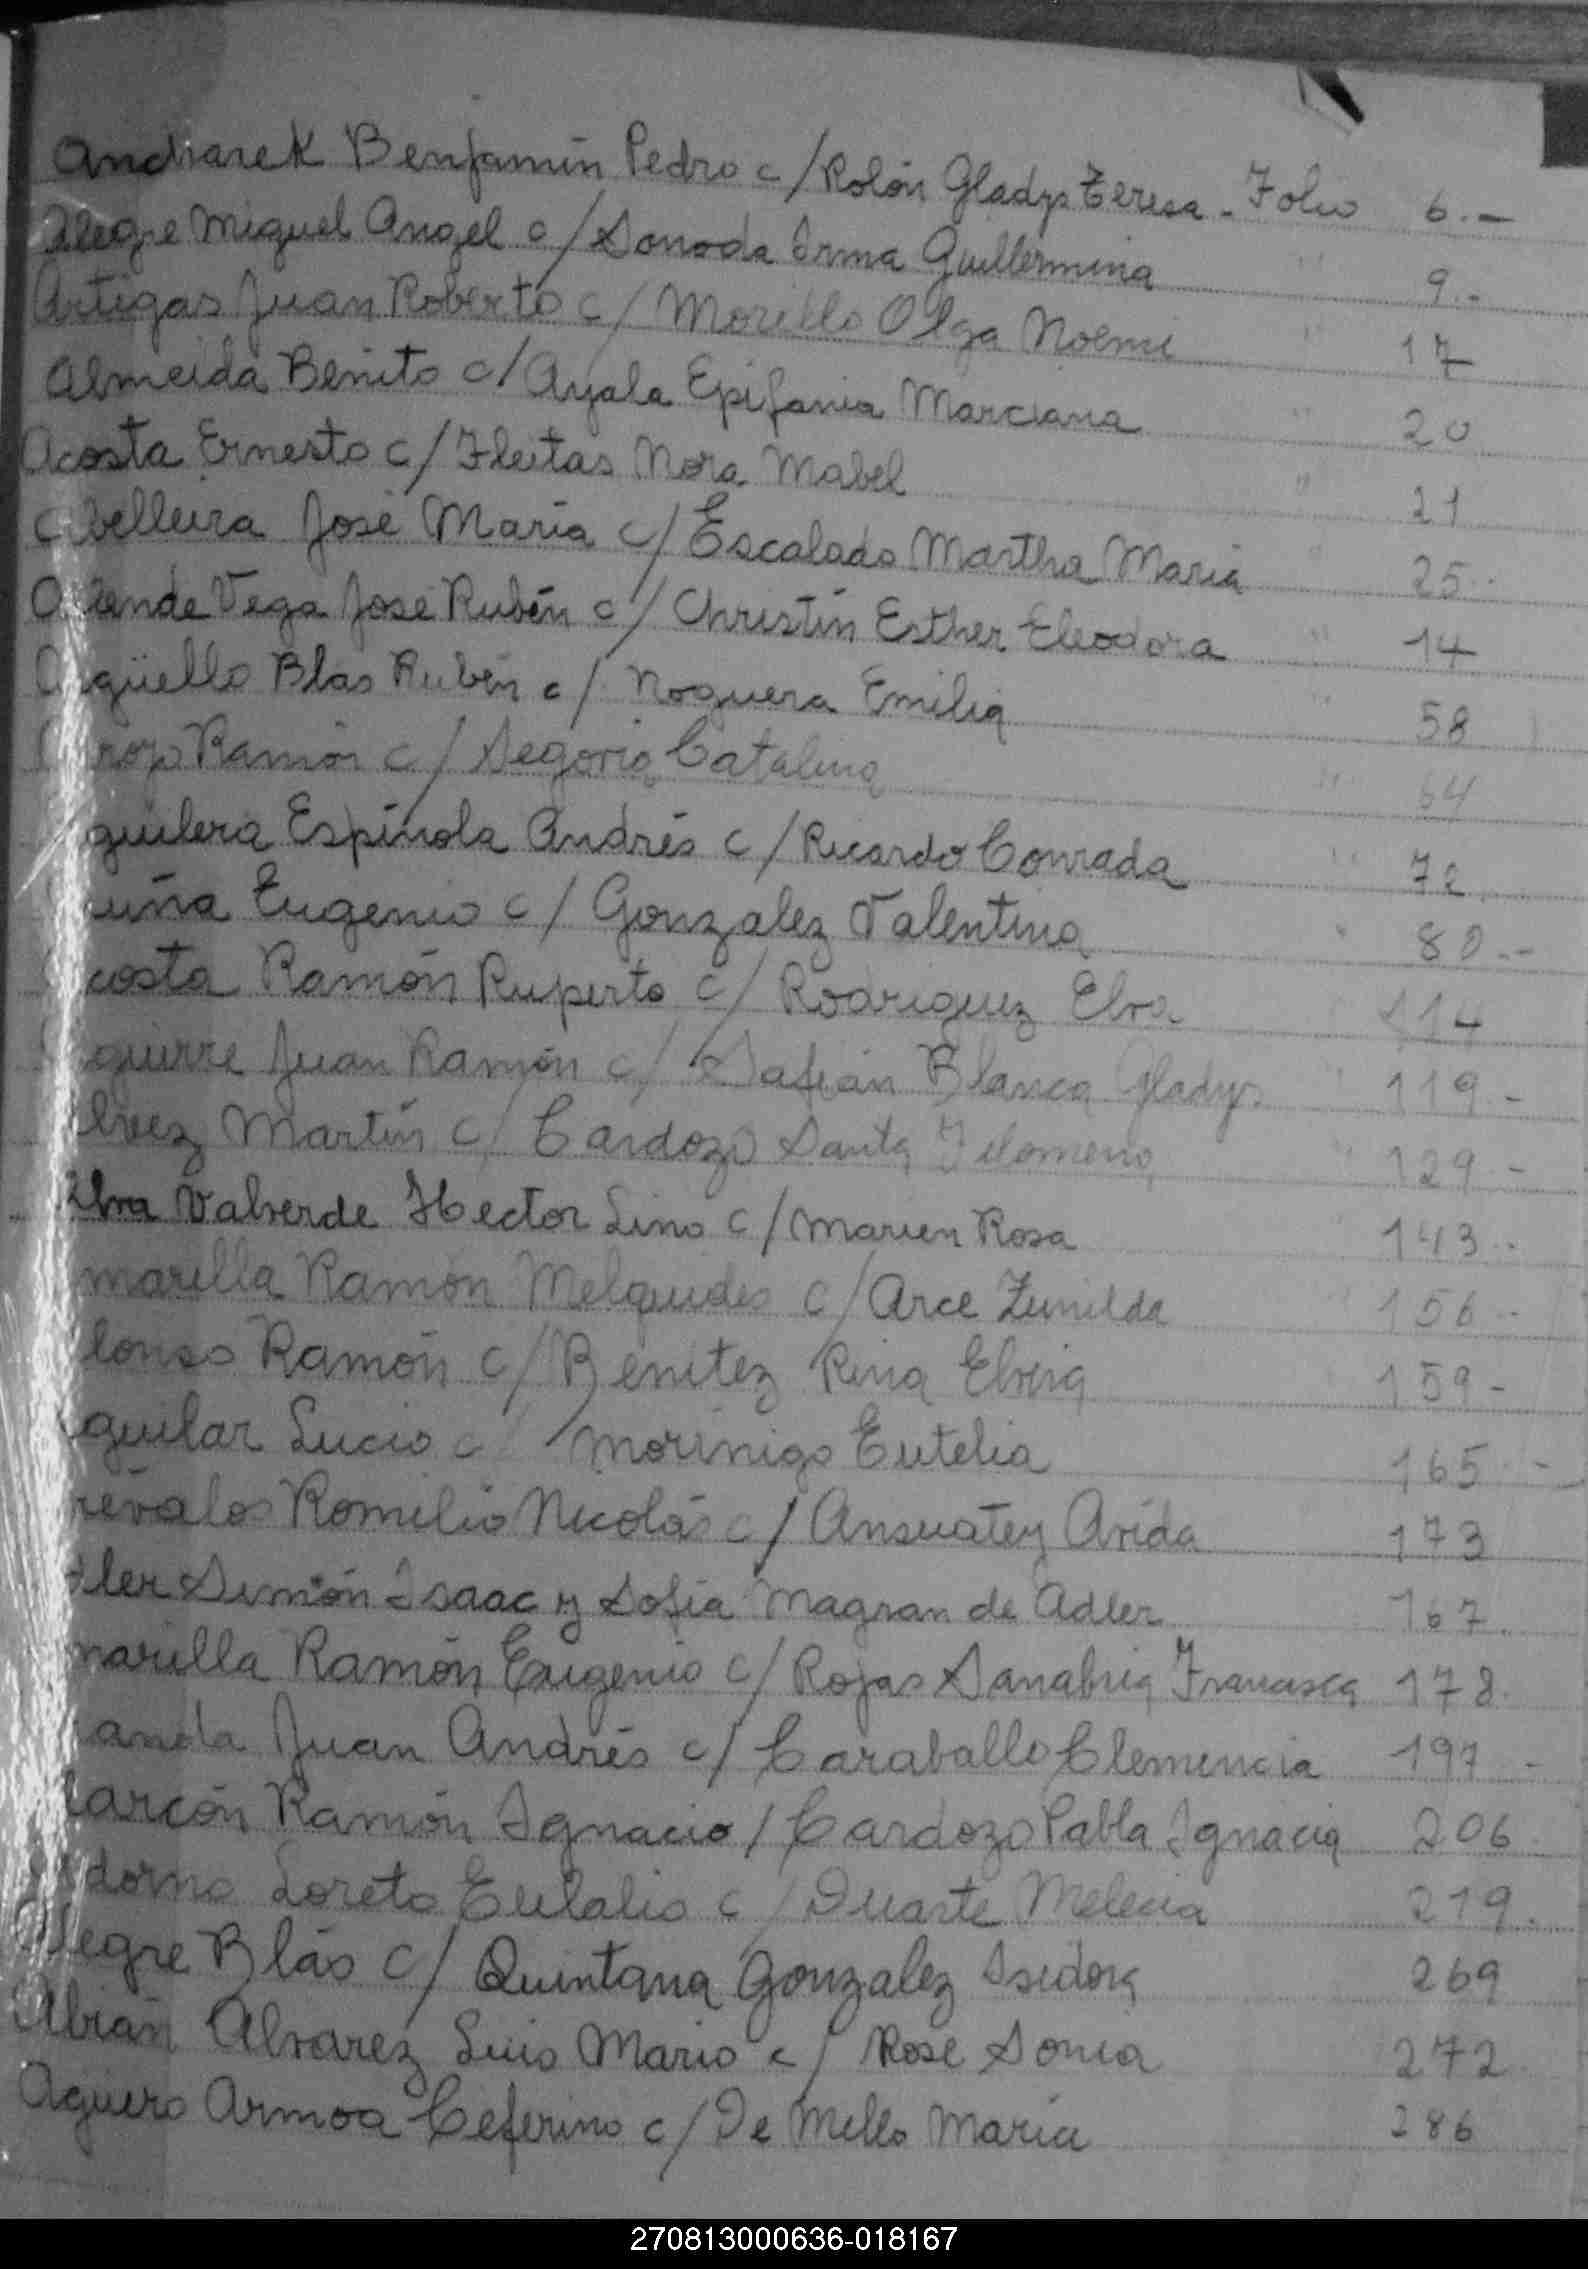 Andrarek Benjamín Pedro c/ Rolón Gladys Teresa - Folio 6.-
Alegre Miguel Angel c/ Sonoda Irma Guillermina " 9.-
Artigas Juan Roberto c/ Morello Olga Noemi " 17
Almeida Benito c/ Ayala Epifania Marciana " 20
Acosta Ernesto c/ Fleitas Nora Mabel " 21
belleira José María c/ Escalada Martha María " 25.-
Allende Vega José Rubén c/ Christin Esther Eleodora " 14
Argüello Blas Rubén c/ Noguera Emilia " 58
Ramón c/ Segovia Catalina " 64
guilera Espínola Andrés c/ Ricardo Conrada " 72
uña Eugenio c/ Gonzalez Valentina " 80.-
costa Ramón Ruperto c/ Rodriguez Elva " 114
guirre Juan Ramón c/ Safián Blanca Gladys " 119.-
lvez Martín c/ Cardozo Santa Filomena " 129.-
Valverde Hector Lino c/ Marien Rosa 143.-
marilla Ramón Melquides c/ Arce Zunilda " 156.-
lonso Ramón c/ Benitez Rina Elvira 159-
guilar Lucio c/ Morinigo Eutelia 165.-
révalos Romilio Nicolás c/ Ansuatey Avida 173
dler Simón Isaac y Sofía Magran de Adler 167.
marilla Ramón Eugenio c/ Rojas Sanabria Francisca 178.
anda Juan Andrés c/ Caraballo Clemencia 197.-
larcón Ramón Ignacio / Cardozo Pabla Ignacia 206.
dorno Loreto Eulalio c/ Duarte Melecia 219.
Alegre Blás c/ Quintana Gonzalez Isidora 269
Abián Alvarez Luis Mario c/ Rose Sonia 272.
Aguero Armoa Ceferino c/ De Mello María 286
270813000636-018167